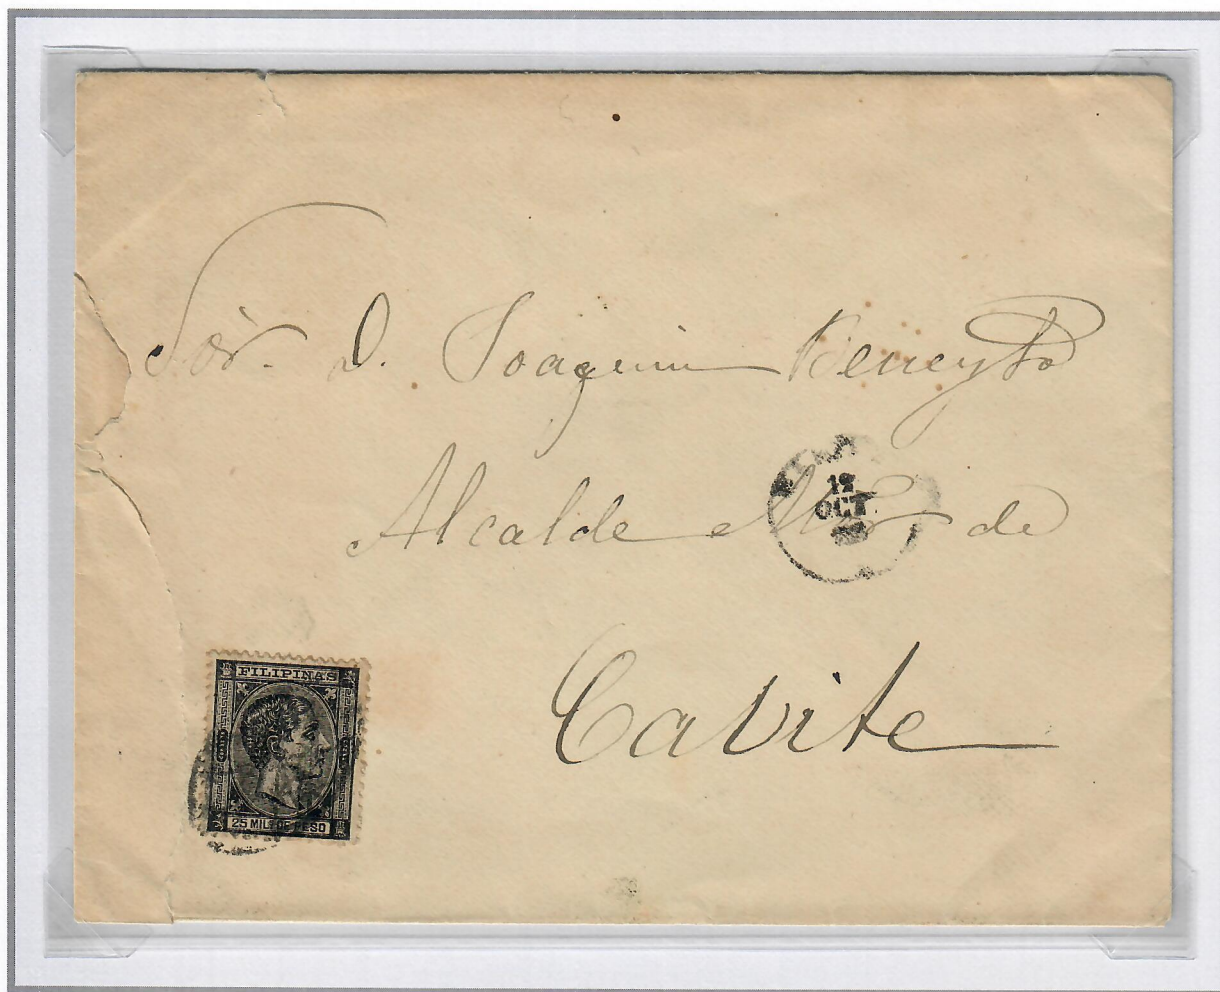 Sor. D. Joaquin Beneyto
Alcalde Mor de
Cavite
12
OCT
FILIPINAS
25 MILs DE PESO